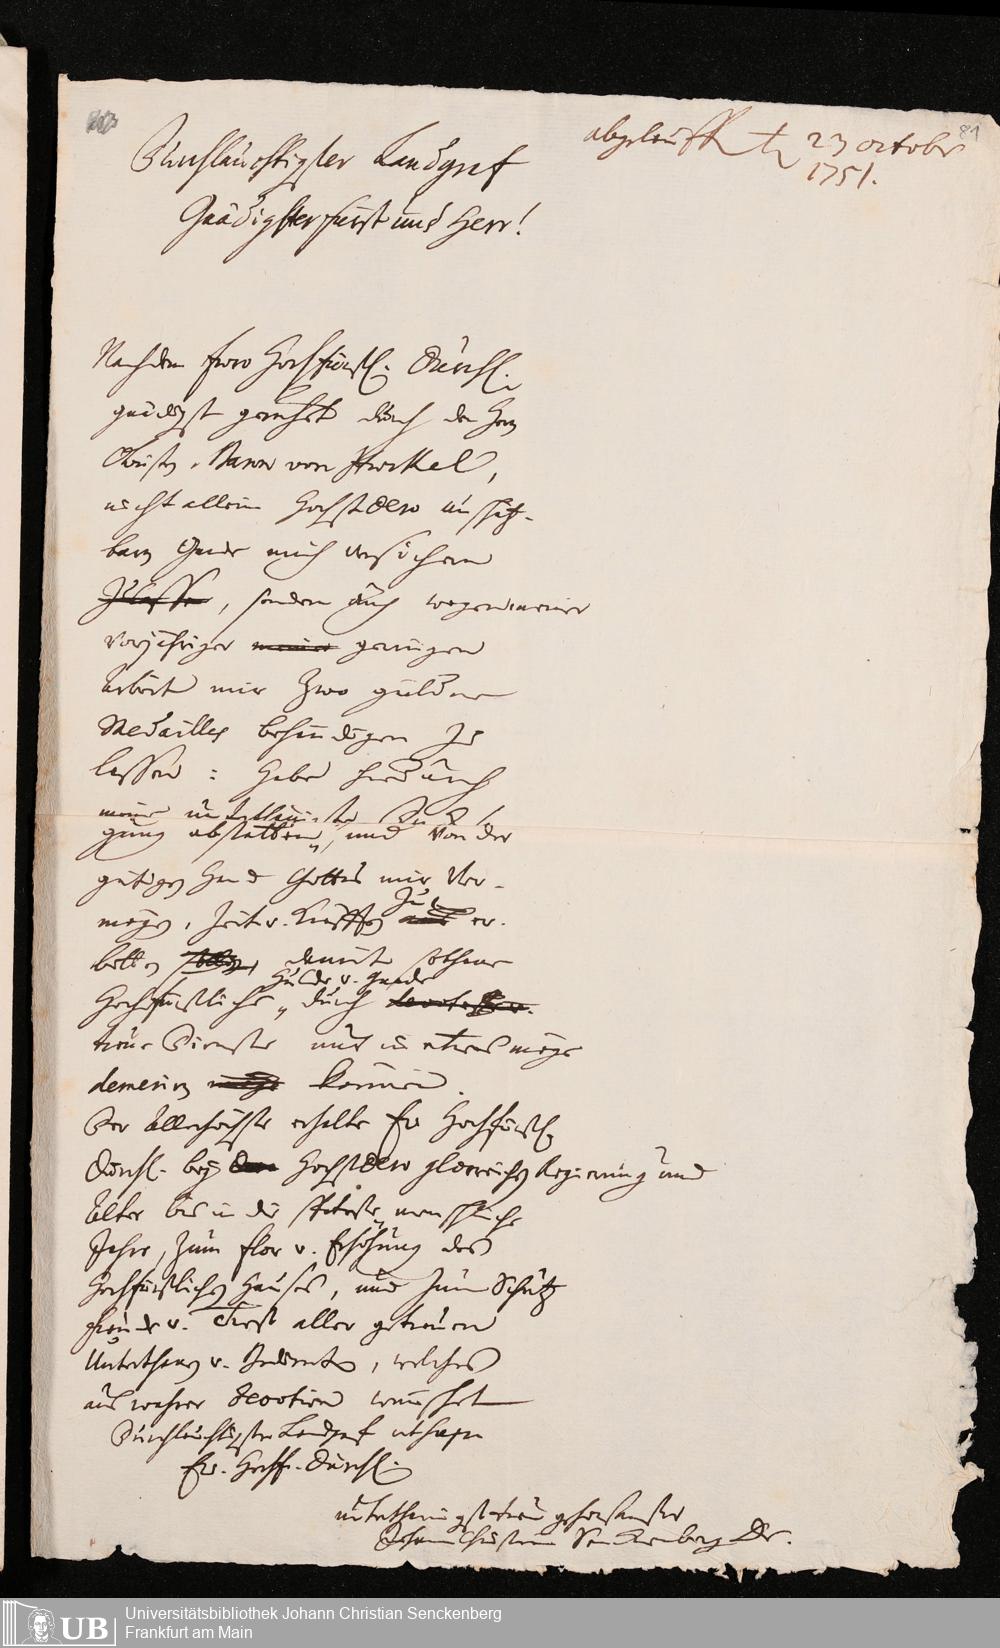 81
abgeloffen den 23 octobr
1751.
Durchlauchtigster Landgraf
Gnädigster Fürst und Herr!
Nachdem Ewro Hochfürstl. Durchl.
gnädigst geruhet durch den Herrn
Obristen Baron von
nicht allein Höchst Dero unschätz-
bare Gnade mich versichern
zu lassen, sondern auch wegen meiner
vorjähriger meiner geringen
Arbeit mir zwo güldene
Medailles behändigen zu
lassen: Habe hierdurch
meine unterthänigste Dancksa-
gung abstatten, und von der
gütigen Hand Gottes mir Ver-
mögen, Zeit u. Kräfften zu er-
bitten sollen, damit sothane
Hochfürstliche Hulde u. Gnade durch
treue Dienste nur in etwas möge
demeriren möge können.
Der Allerhöchste erhalte Ew Hochfürstl.
Durchl. bey Höchst Dero glorreichen Regierung und
Alter bis in die späteste menschliche
Jahre, zum Flor u. Erhöhung des
Hochfürstlichen Hauses, und zum Schutz
Freude u. Trost aller getreuen
Unterthanen u. Bedienten, welches
aus wahrer Devotion wünschet
Durchlauchtigster Landgraf
Ew. Hochf. Durchl.
unterthänigst treu gehorsamster
Johann Christian Senckenberg Dr.
UB
Universitätsbibliothek Johann Christian Senckenberg
Frankfurt am Main